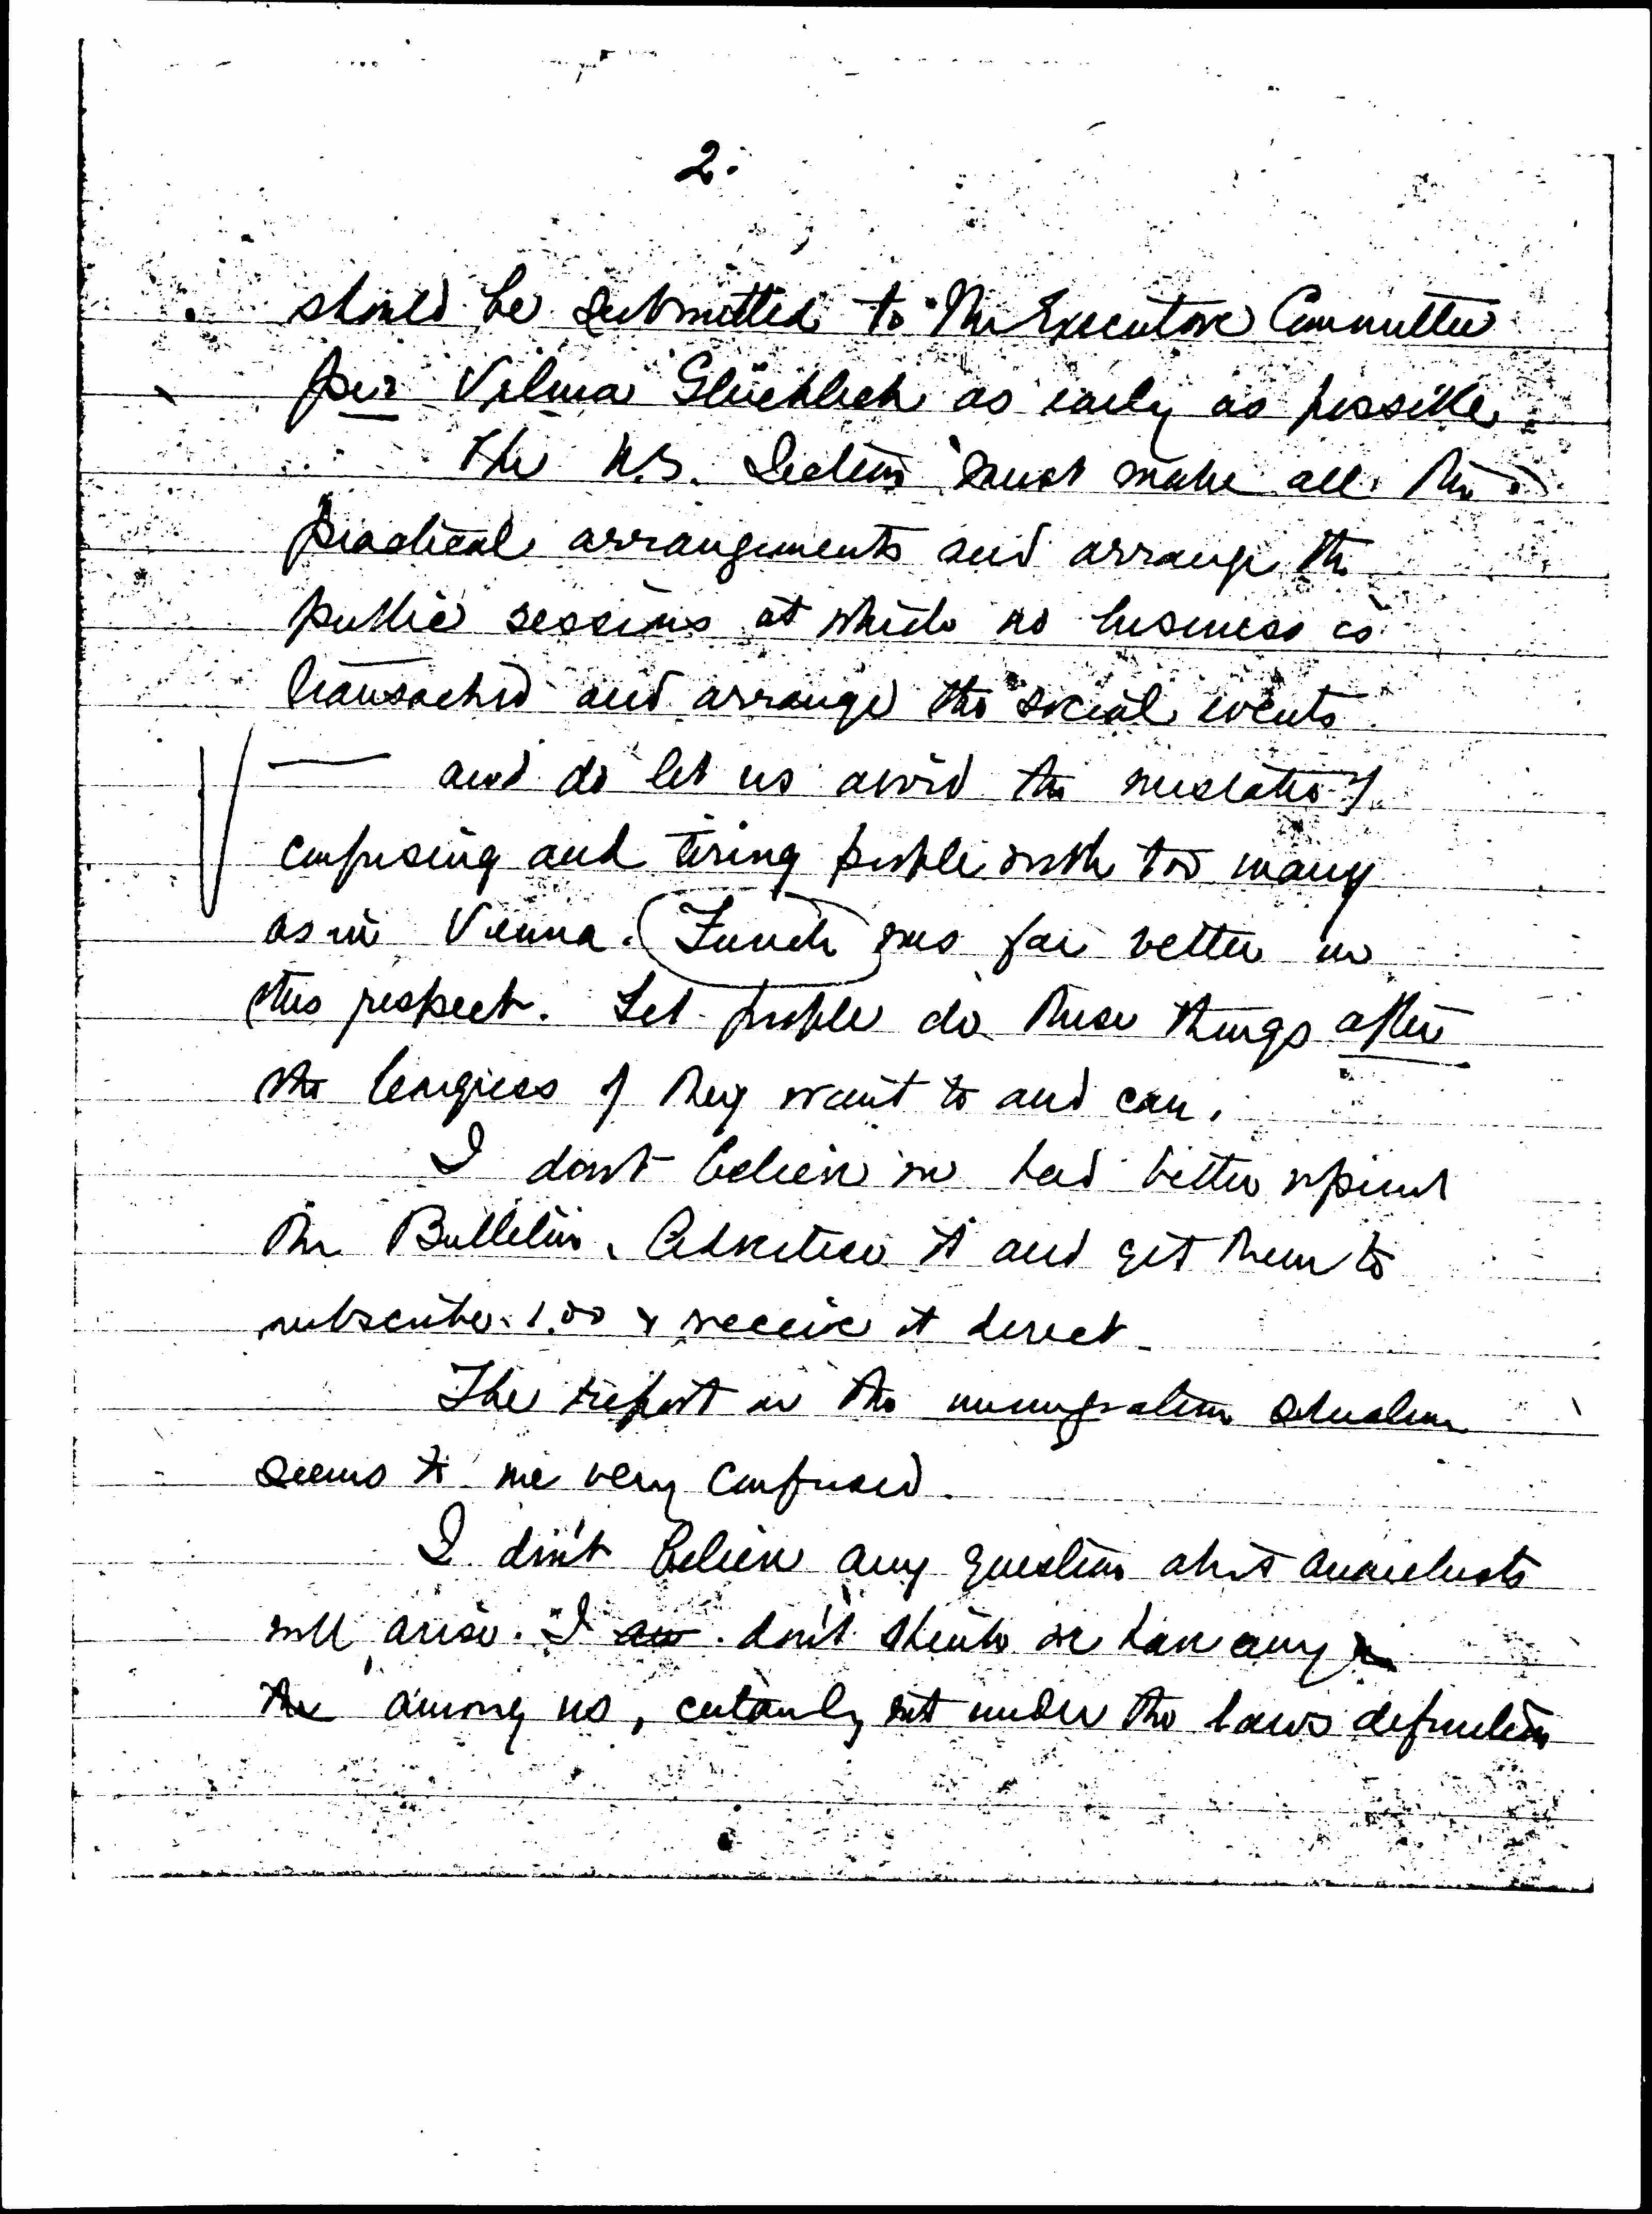 2.
should be submitted to the Executive Committee
per Vilma Glücklich as early as possible.
The U.S. Section must make all the
practical arrangements and arrange the
public sessions at which no business is
transacted and arrange the social events
— and do let us avoid the mistake of
confusing and tiring people with too many
as in Vienna. Zurich was far better in
this respect. Let people do these things after
the Congress if they want to and can.
I don't believe we had better reprint
the Bulletin. Advertise it and get them to
subscribe 1.00 & receive it direct.
The report on the immigration situation
seems to me very confused.
I don't believe any question about anarchists
will arise. I don't think we have any
among us, certainly not under the laws definition